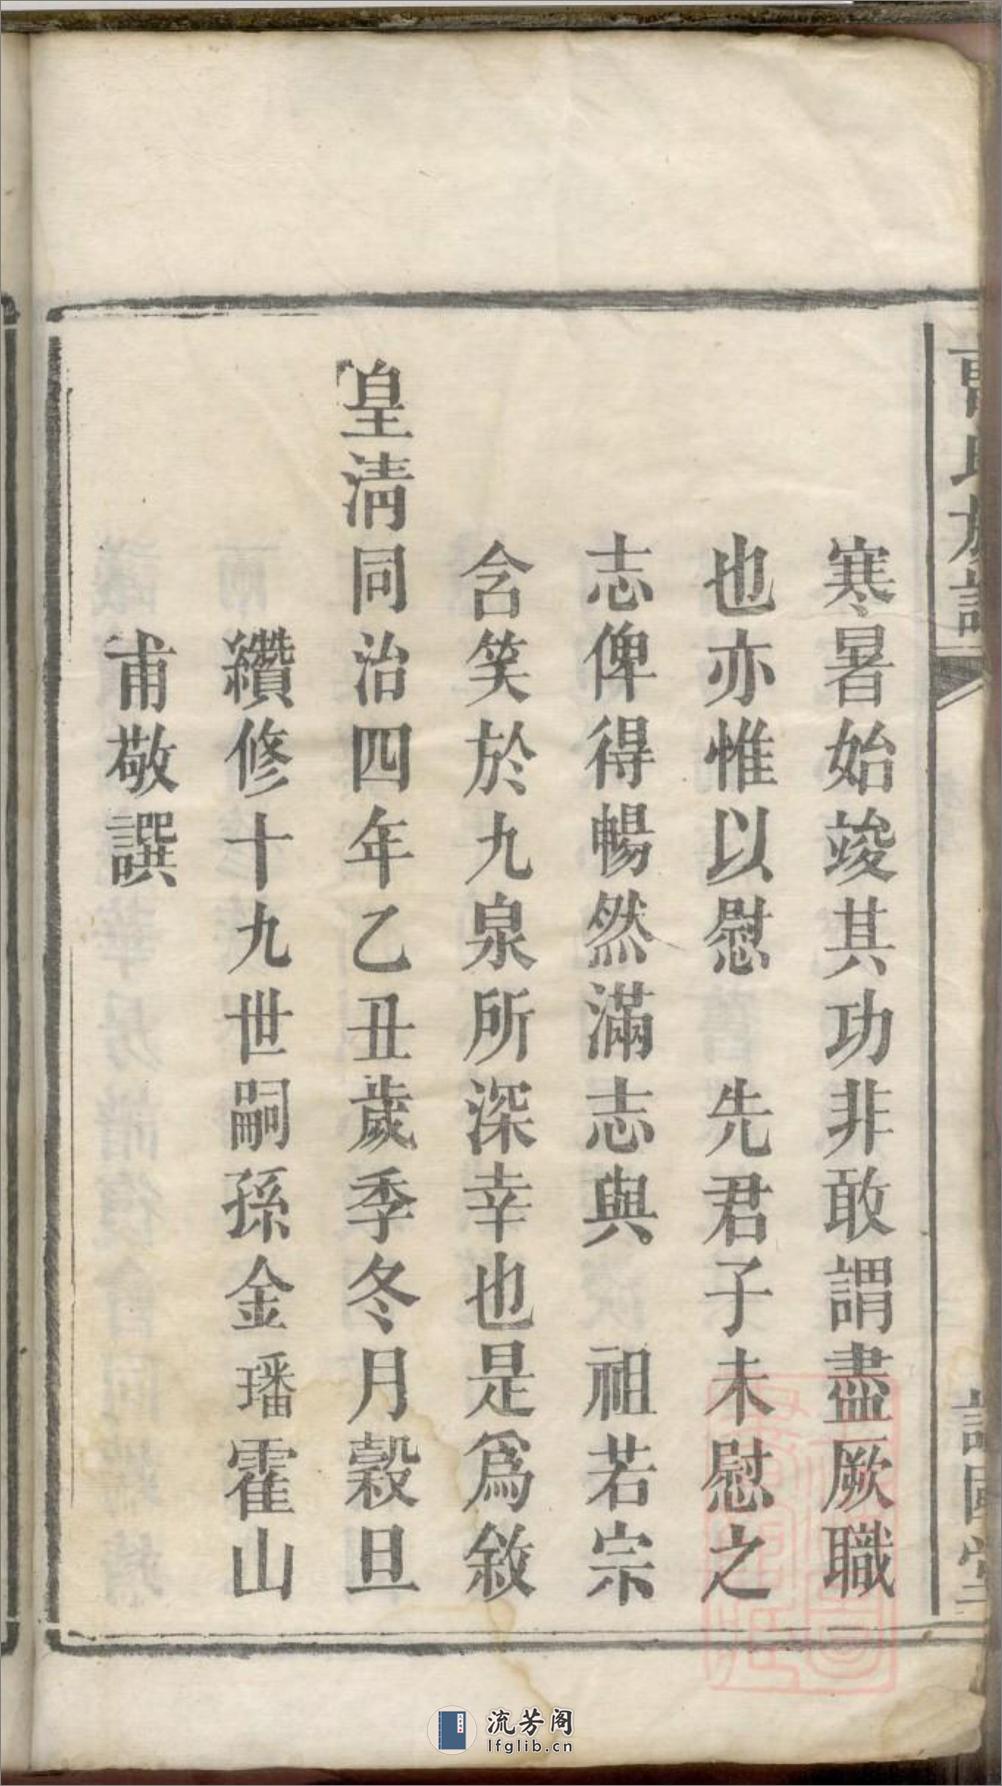 寒暑始竣其功非敢謂盡厥職
也亦惟以慰　先君子未慰之
志俾得暢然滿志與　祖若宗
含笑於九泉所深幸也是爲敘
皇清同治四年乙丑歲季冬月穀旦
纘修十九世嗣孫金璠霍山
甫敬譔
氏族譜
流芳阁
lfglib.cn